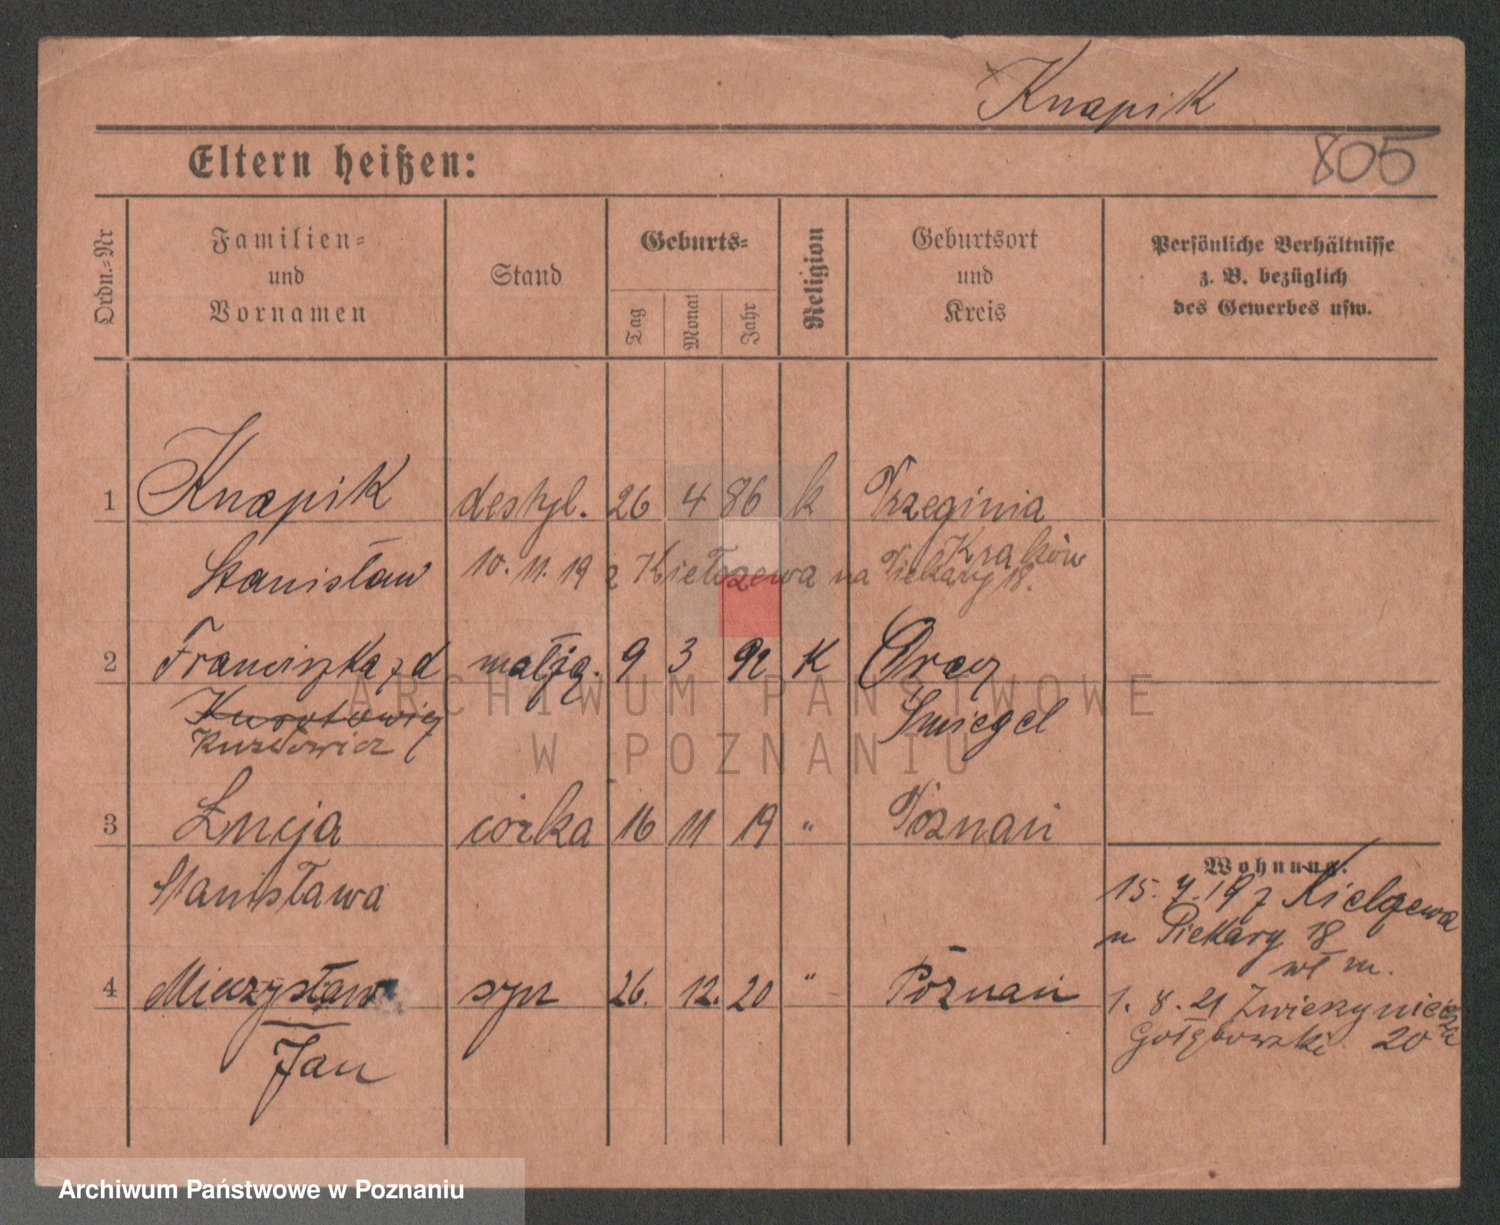 Knapik
805
Eltern heißen:
Ordn.-Nr
Familien-
und
Vornamen
Stand
Geburts-
Tag
Monat
Jahr
Religion
Geburtsort
und
Kreis
Persönliche Verhältnisse
z. B. bezüglich
des Gewerbes usw.
1 Knapik destyl. 26 4 86 k Trzeginia
Kraków
Stanisław 10. 11. 19 z Kiełczewa na Piekary 18.
2 Franciszka z d małżą. 9 3 92 K
Śmiegel
Kurztowicz
3 Łucja córka 16 11 19 " Poznań
Stanisława
Wohnung:
15. 7. 19 z Kielczewa
n Piekary 18
wł m.
4 Mieczysław syn 26. 12. 20 " Poznań
1. 8. 21 Zwierzyniecka
20
Jan
ARCHIWUM PAŃSTWOWE
W POZNANIU
Archiwum Państwowe w Poznaniu